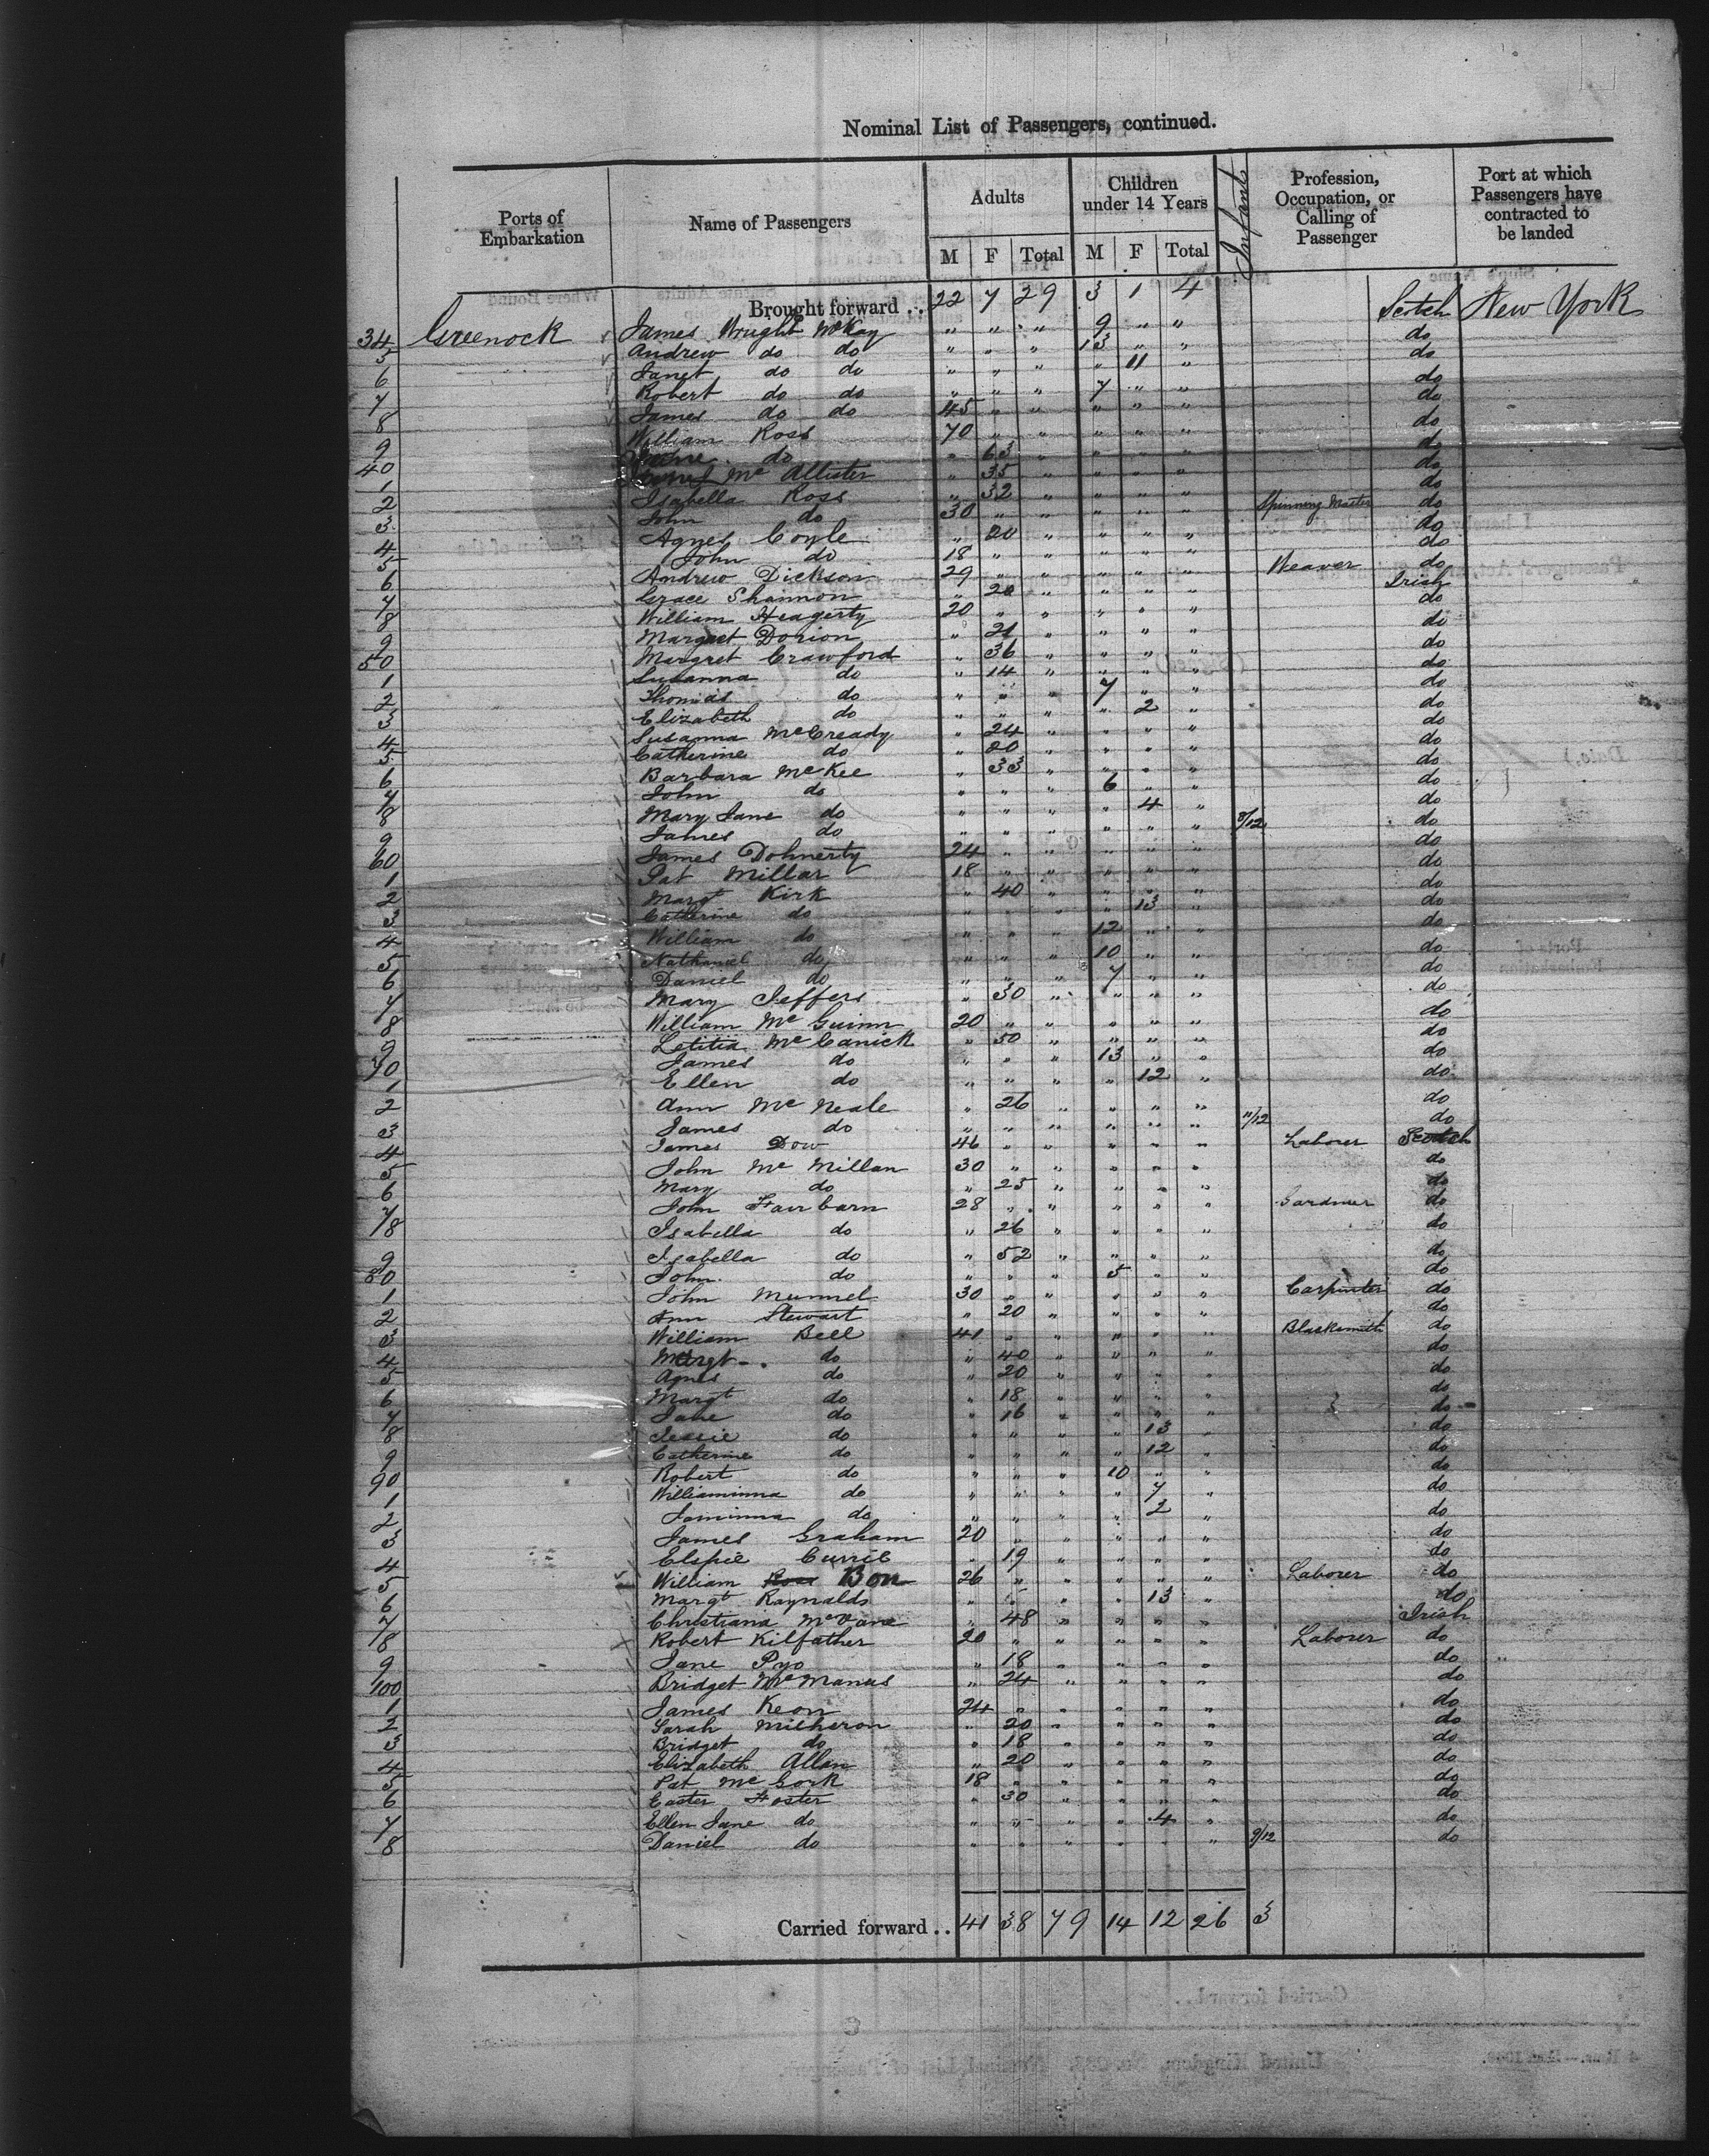 Nominal List of Passengers, continued.
Ports of Embarkation | Name of Passengers | Adults M F Total | Children under 14 Years M F Total | Infants | Profession, Occupation, or Calling of Passenger | Port at which Passengers have contracted to be landed
Brought forward .. 22 7 29 3 1 4
34 Greenock James Wright McKay " " " 9 " " Scotch New York
5 Andrew do do " " " 13 " " do
6 Janet do do " " " " 11 " do
7 Robert do do " " " 7 " " do
8 James do do 45 " " " " " do
9 William Ross 70 " " " " " do
40 do " 63 " " " " do
1 Mc Allister " 35 " " " " do
2 Isabella Ross " 32 " " " " do
3 John do 30 " " " " " Spinning Master do
4 Agnes Coyle " 20 " " " " do
5 John do 18 " " " " " do
6 Andrew Dickson 29 " " " " " Weaver do
7 Grace Shannon " 20 " " " " Irish
8 William Heagerty 20 " " " " " do
9 Margaret Dorion " 21 " " " " do
50 Margret Crawford " 36 " " " " do
1 Susanna do " 14 " " " " do
2 Thomas do " " " 7 " " do
3 Elizabeth do " " " " 2 " do
4 Susanna McCready " 24 " " " " do
5 Catherine do " 20 " " " " do
6 Barbara McKee " 33 " " " " do
7 John do " " " 6 " " do
8 Mary Jane do " " " " 4 " do
9 James do " " " " " " 8/12 do
60 James Dohnerty 24 " " " " " do
1 Pat Millar 18 " " " " " do
2 Margt Kirk " 40 " " " " do
3 Catherine do " " " " 13 " do
4 William do " " " 12 " " do
5 Nathaniel do " " " 10 " " do
6 Daniel do " " " 7 " " do
7 Mary Jeffers " 30 " " " " do
8 William McGuinn 20 " " " " " do
9 Letitia McCanick " 50 " " " " do
70 James do " " " 13 " " do
1 Ellen do " " " " 12 " do
2 Ann McNeale " 26 " " " " do
3 James do " " " " " " 11/12 do
4 James Dow 46 " " " " " Laborer Scotch
5 John McMillan 30 " " " " " do
6 Mary do " 25 " " " " do
7 John Fairbarn 28 " " " " " Gardner do
8 Isabella do " 26 " " " " do
9 Isabella do " 52 " " " " do
80 John do " " " 5 " " do
1 John Munnel 30 " " " " " Carpenter do
2 Ann Stewart " 20 " " " " do
3 William Bell 41 " " " " " Blacksmith do
4 Margt do " 40 " " " " do
5 Agnes do " 20 " " " " do
6 Margt do " 18 " " " " do
7 Jane do " 16 " " " " do
8 Jessie do " " " " 13 " do
9 Catherine do " " " " 12 " do
90 Robert do " " " 10 " " do
1 Williaminna do " " " " 7 " do
2 Jaminna do " " " " 2 " do
3 James Graham 20 " " " " " do
4 Elspie Currie " 19 " " " " do
5 William Ross Bon 26 " " " " " Laborer do
6 Margt Raynalds " " " " 13 " do
7 Christiana McVane " 48 " " " " Irish
8 Robert Kilfather 20 " " " " " Laborer do
9 Jane Pyo " 18 " " " " do
100 Bridget McManus " 24 " " " " do
1 James Keon 24 " " " " " do
2 Sarah Milheron " 20 " " " " do
3 Bridget do " 18 " " " " do
4 Elizabeth Allan " 20 " " " " do
5 Pat McGork 18 " " " " " do
6 Easter Foster " 30 " " " " do
7 Ellen Jane do " " " " 4 " do
8 Daniel do " " " " " " 9/12 do
Carried forward .. 41 38 79 14 12 26 3